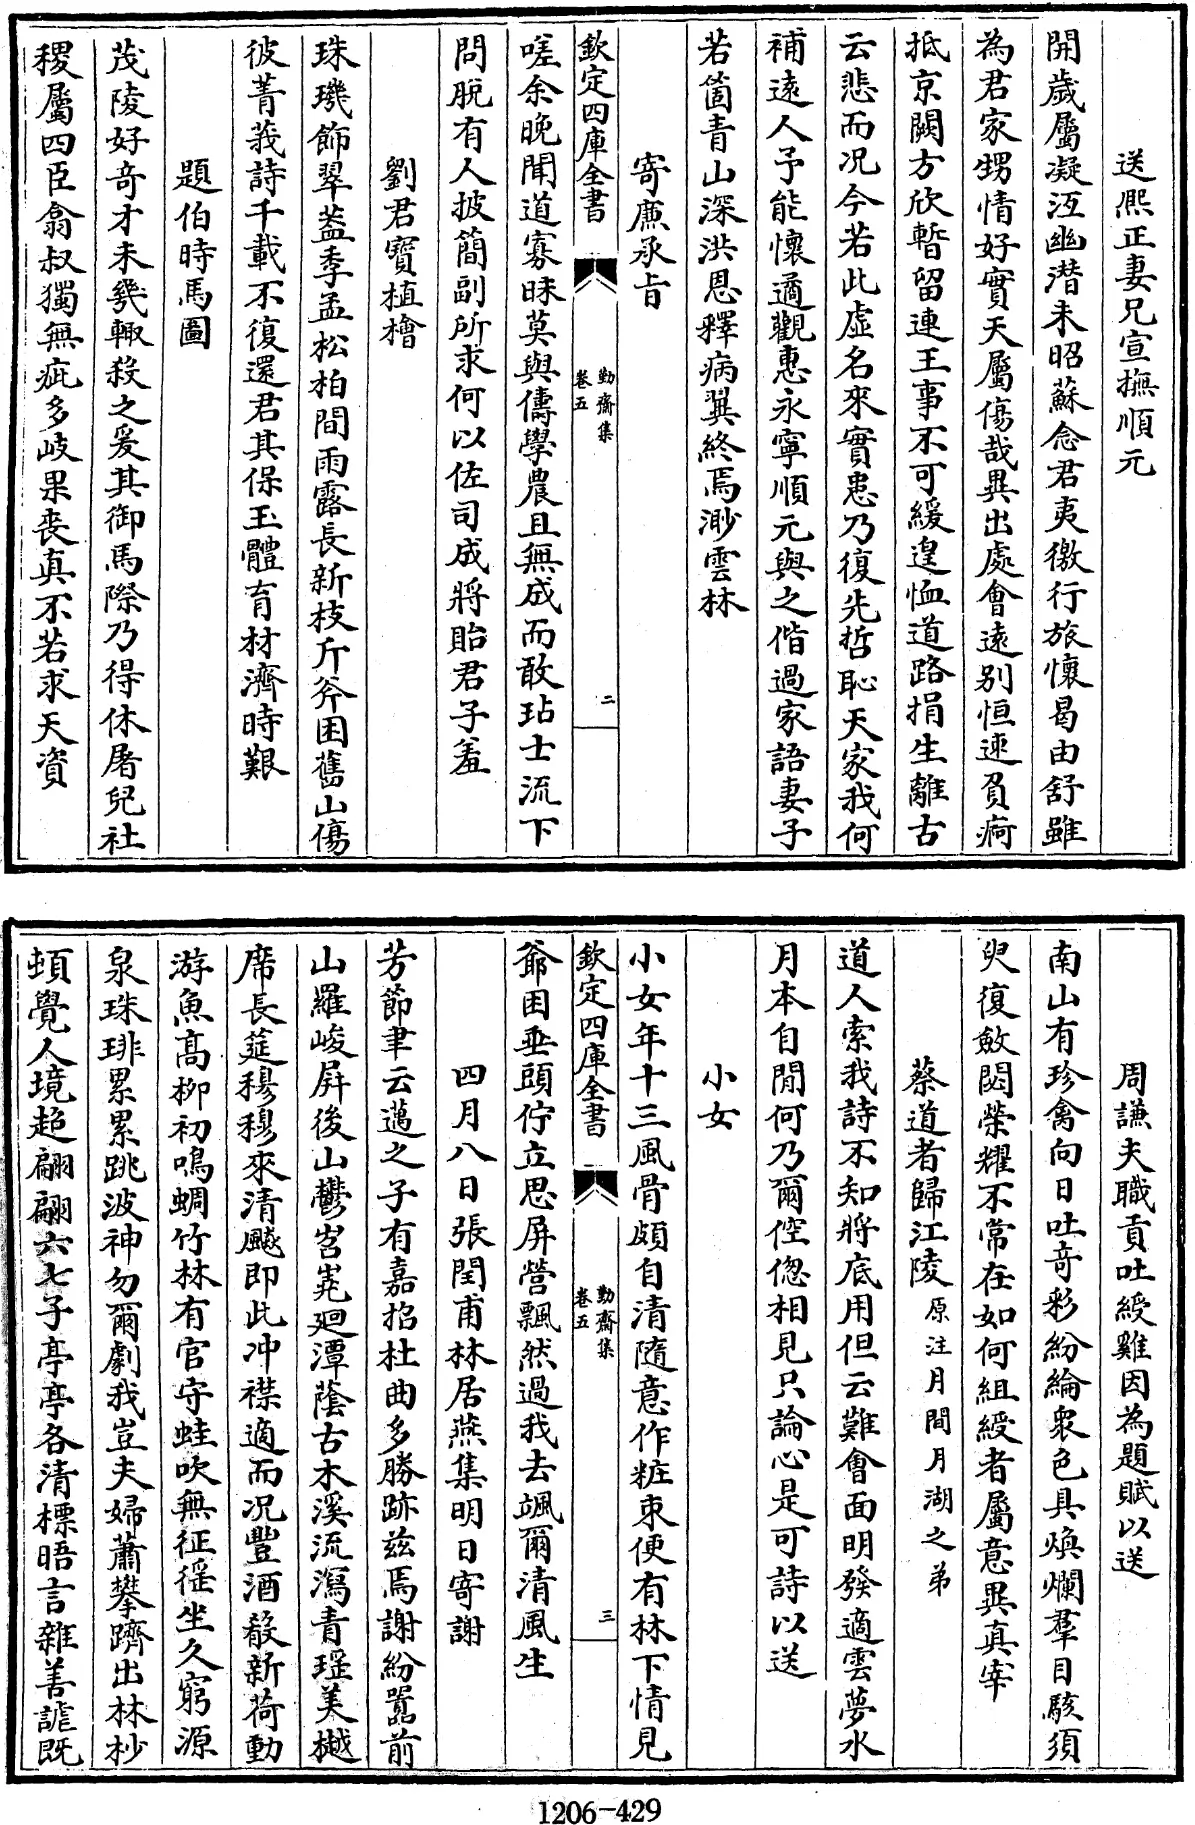 送熙正妻兄宣撫順元
開歲屬凝沍幽潛未昭蘇念君夷徼行旅懷曷由舒雖
為君家甥情好實天屬傷哉異出處會遠別恒速負痾
抵京闕方欣暫留連王事不可緩遑恤道路捐生離古
云悲而况今若此虛名來實患乃復先哲恥天家我何
補遠人予能懷遹觀惠永寧順元與之偕過家語妻子
若箇青山深洪恩釋病翼終焉渺雲林
寄廉承旨
欽定四庫全書
勤齋集
卷五
二
嗟余晚聞道寡昧莫與儔學農且無成而敢玷士流下
問脫有人披簡副所求何以佐司成將貽君子羞
劉君寳植檜
珠璣飾翠葢季孟松柏間雨露長新枝斤斧困舊山傷
彼菁莪詩千載不復還君其保玉體育材濟時艱
題伯時馬圖
茂陵好奇才未幾輙殺之爰其御馬際乃得休屠兒社
稷屬四臣翁叔獨無疵多岐果喪真不若求天資
周謙夫職貢吐綬雞因為題賦以送
南山有珍禽向日吐奇彩紛綸衆色具煥爛羣目駭須
臾復斂閟榮耀不常在如何組綬者屬意異真宰
蔡道者歸江陵原注月間月湖之弟
道人索我詩不知將底用但云難會面明發適雲夢水
月本自閒何乃爾倥偬相見只論心是可詩以送
小女
小女年十三風骨頗自清隨意作粧束便有林下情見
欽定四庫全書
勤齋集
卷五
三
爺困垂頭佇立思屏營飄然過我去颯爾清風生
四月八日張閏甫林居燕集明日寄謝
芳節聿云邁之子有嘉招杜曲多勝跡兹焉謝紛囂前
山羅峻屏後山鬱岧嶤廻潭蔭古木溪流瀉青瑶美樾
席長筵穆穆來清飈即此冲襟適而况豐酒殽新荷動
游魚髙柳初鳴蜩竹林有官守蛙吹無征徭坐久窮源
泉珠琲累累跳波神勿爾劇我豈夫婦蕭攀躋出林杪
頓覺人境超翩翩六七子亭亭各清標晤言雜善謔既
1206-429